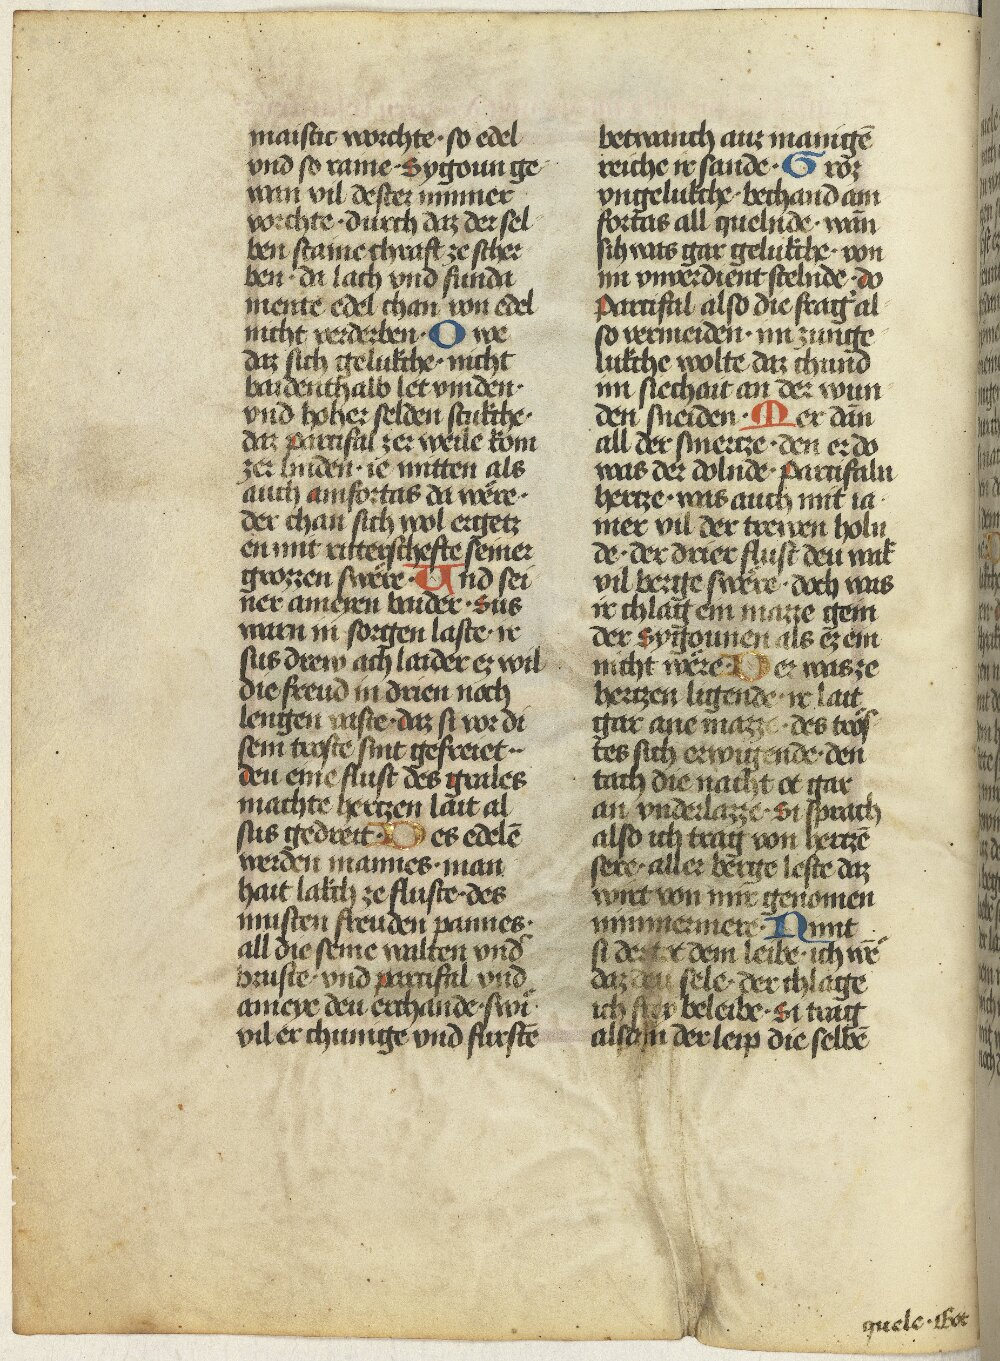 maister worchte · so edel
vnd so raine · Sygoun ge
wan vil dester minner
vorchte · durch daz der sel
ben stame chraft ze scher
ben · da lach vnd funda
mente edel chan von edel
nicht verderben · O we
daz sich gelukche · nicht
baidenthalb let vinden ·
vnd hoher selden stukche ·
daz partifal zer weile kom
zer linden · ie mitten als
auch amfortas da wëre ·
der chan sich wol ergetz
en mit ritterschefte seiner
grozzen swëre · Und sei
ner ameyen baider · Sus
warn in sorgen laste · ir
sus drew ach laider ez wil
die freud in drien noch
lengen raste · daz si vor di
sem troste sint gefreiet ··
den eine flust des grales
machte hertzen lait al
sus gedreit · Des edelē
werden mannes · man
hait lakch ze fluste · des
musten freuden pannes ·
all die seine walten vnd
bruste · vnd partifal vnd
ameye den erchande · swi
vil er chunige vnd furstē
betwanch auz manigē
reiche ir sande · Groz
vngelukche · bechand am
fortas all quelnde · wān
sich was gar gelukche · von
im vnverdient stelnde · do
Partifal also die frag al
so vermeiden · im zunge
lukche wolte daz chund
im siechait an der wun
den sneiden · Mer dān
all der smertze · den er do
was der dolnde · Partifaln
hertze · was auch mit ia
mer vil der trewen holn
de · der drier flust den wak
vil berge swëre · doch was
ir chlag ein mazze gein
der Sygounen als ez ein
nicht wëre · Der was ze
hertzen ligende · ir lait
gar ane mazze · des tros
tes sich erwigende · den
tach die nacht et gar
an vnderlazze · Si sprach
also ich trag von hertzē
sere · aller berge leste daz
wirt von mir genomen
nimmermere · Nimt
si der tot dem leibe · ich wē
daz den sele · der chlage
ich frey beleibe · Si trag
also in der leip die selbē
quele · Got